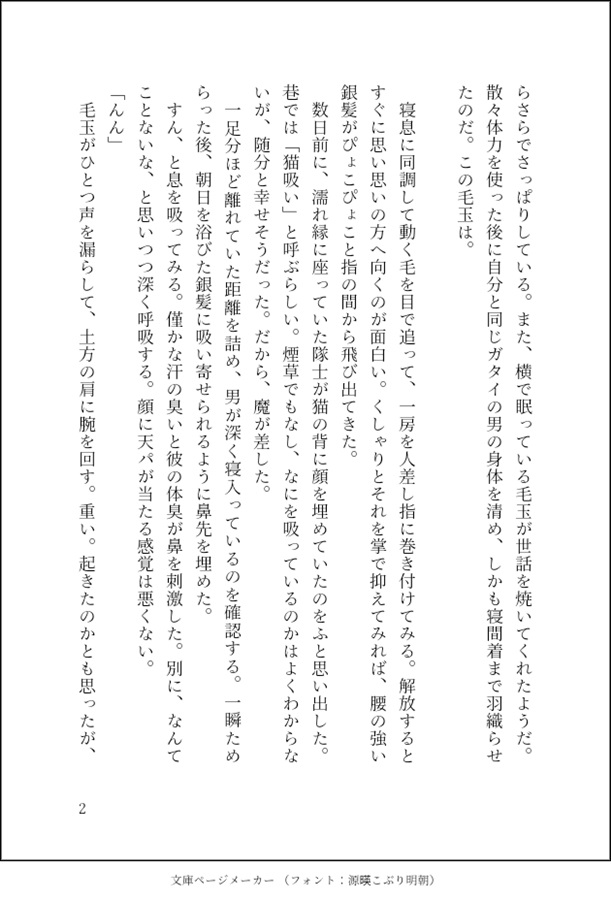 らさらでさっぱりしている。また、横で眠っている毛玉が世話を焼いてくれたようだ。
散々体力を使った後に自分と同じガタイの男の身体を清め、しかも寝間着まで羽織らせ
たのだ。この毛玉は。
寝息に同調して動く毛を目で追って、一房を人差し指に巻き付けてみる。解放すると
すぐに思い思いの方へ向くのが面白い。くしゃりとそれを掌で抑えてみれば、腰の強い
銀髪がぴょこぴょこと指の間から飛び出てきた。
数日前に、濡れ縁に座っていた隊士が猫の背に顔を埋めていたのをふと思い出した。
巷では「猫吸い」と呼ぶらしい。煙草でもなし、なにを吸っているのかはよくわからな
いが、随分と幸せそうだった。だから、魔が差した。
一足分ほど離れていた距離を詰め、男が深く寝入っているのを確認する。一瞬ため
らった後、朝日を浴びた銀髪に吸い寄せられるように鼻先を埋めた。
すん、と息を吸ってみる。僅かな汗の臭いと彼の体臭が鼻を刺激した。別に、なんて
ことないな、と思いつつ深く呼吸する。顔に天パが当たる感覚は悪くない。
「んん」
毛玉がひとつ声を漏らして、土方の肩に腕を回す。重い。起きたのかとも思ったが、
2
文庫ページメーカー（フォント：源暎こぶり明朝）